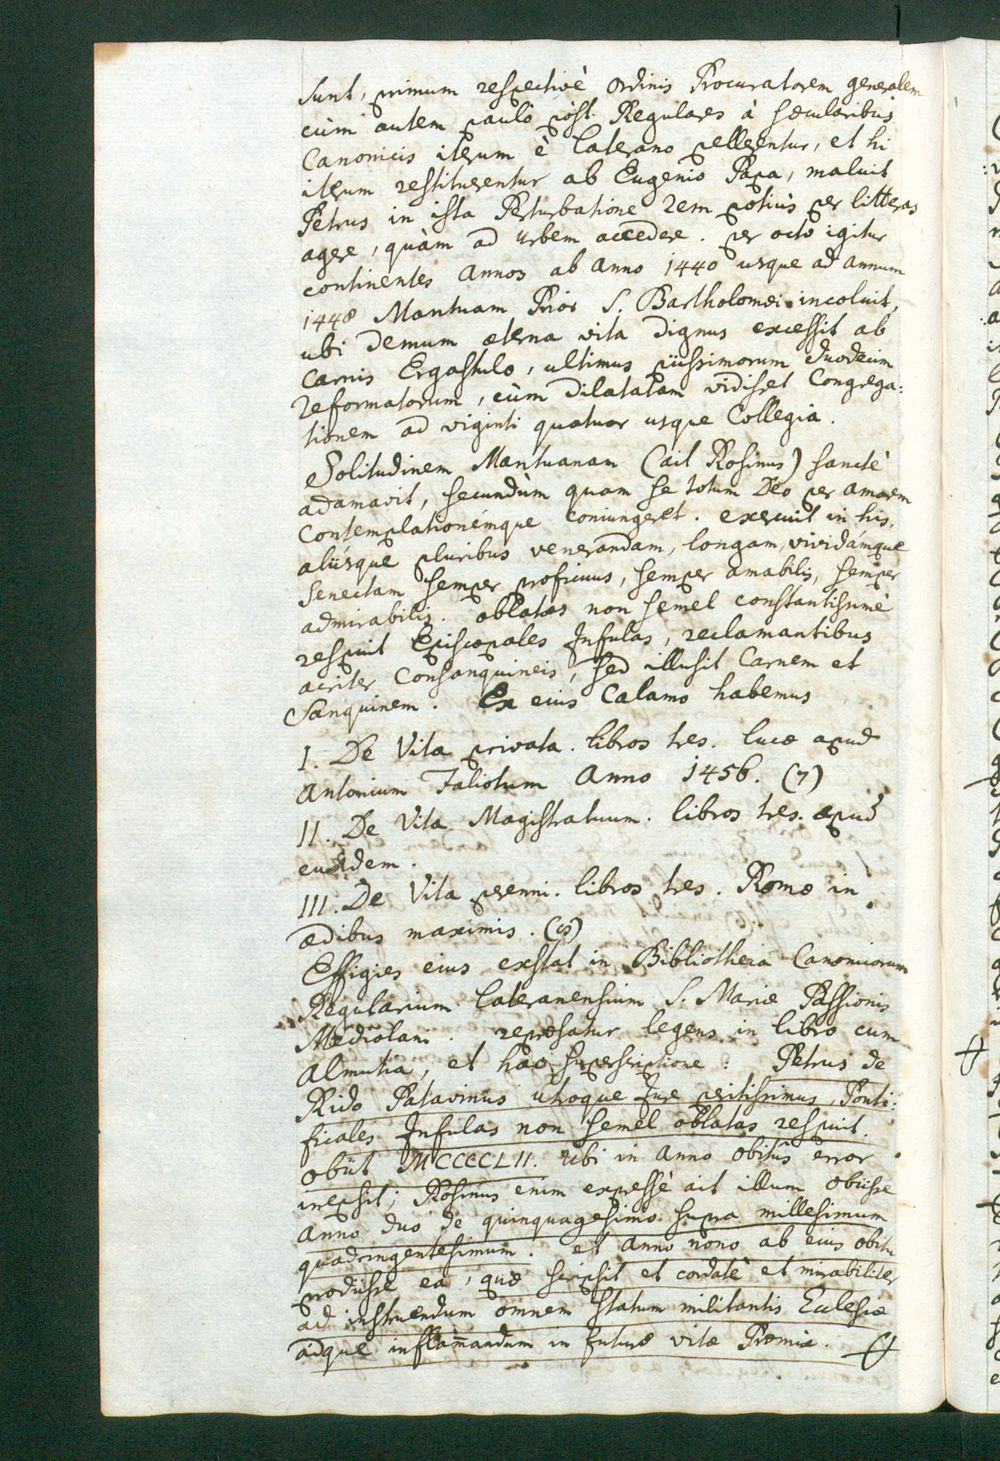 sunt, primum respectivè ordinis Procuratorem generalem
cùm autem paulò post Regulares à sæcularibus
Canonicis iterum è Laterano pellerentur, et hi
iterum restituerentur ab Eugenio Papa, maluit
Petrus in ista Perturbatione rem potiùs per litteras
agere, quàm ad Urbem accedere. Per octo igitur
continentes annos ab anno 1440 usque ad annum
1448 Mantuam Prior S. Bartholomæi incoluit,
ubi demum æterna vita dignus excessit ab
carnis Ergastulo, ultimus piissimorum duodecim
reformatorum, cùm dilatatam vidisset Congrega:
tionem ad viginti quatuor usque Collegia.
Solitudinem Mantuanam (ait Rosinus) sanctè
adamavit, secundùm quam se totum Deo per amorem
contemplationémque coniungeret. exercuit in his,
aliísque pluribus venerandam, longam, vividámque
senectam semper proficuus, semper amabilis, semper
admirabilis. oblatas non semel constantissimè
respuit Episcopales Infulas, reclamantibus
acriter Consanguineis, sed illusit Carnem et
Sanguinem. Ex eius Calamo habemus
I. De Vita privata. libros tres. Lucæ apud
Antonium Faliotum Anno 1456. (7)
II. De Vita Magistratuum. libros tres. apud
eundem.
III. De Vita perenni. libros tres. Romæ in
ædibus maximis.
Effigies eius exstat in Bibliotheca Canonicorum
Regularium Lateranensium S. Mariæ Passionis
Mediolani. repræsatur legens in libro cum
Almutia, et hac superscriptione: Petrus de
Rido Patavinus utroque Jure peritissimus, Ponti:
ficales Infulas non semel oblatas respuit.
obiit MCCCCLII. Ubi in Anno obitûs error
irrepsit; Rosinus enim expressè ait illum obiisse
anno duo de quinquagesimo supra millesimum
quadringentesimum. et anno nono ab eius obitu
prodiisse ea, quæ scripsit et cordatè et mirabiliter
ad instruendum omnem statum militantis Ecclesiæ
adque inflammandum in futuræ vitæ Præmia.